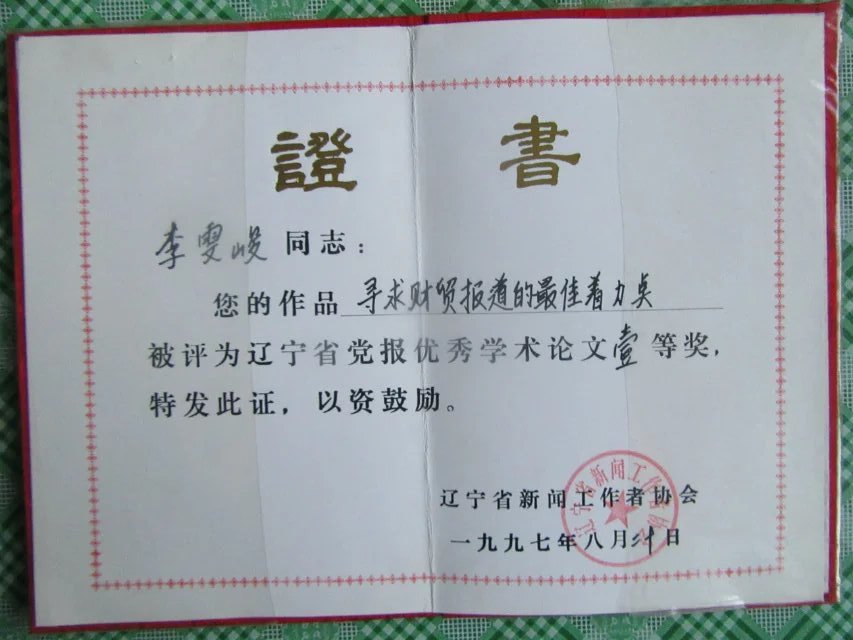 證書
李雯峻同志：
您的作品 寻求财贸报道的最佳着力点
被评为辽宁省党报优秀学术论文壹等奖，
特发此证，以资鼓励。
辽宁省新闻工作者协会
一九九七年八月 日
辽宁省新闻工作者协会